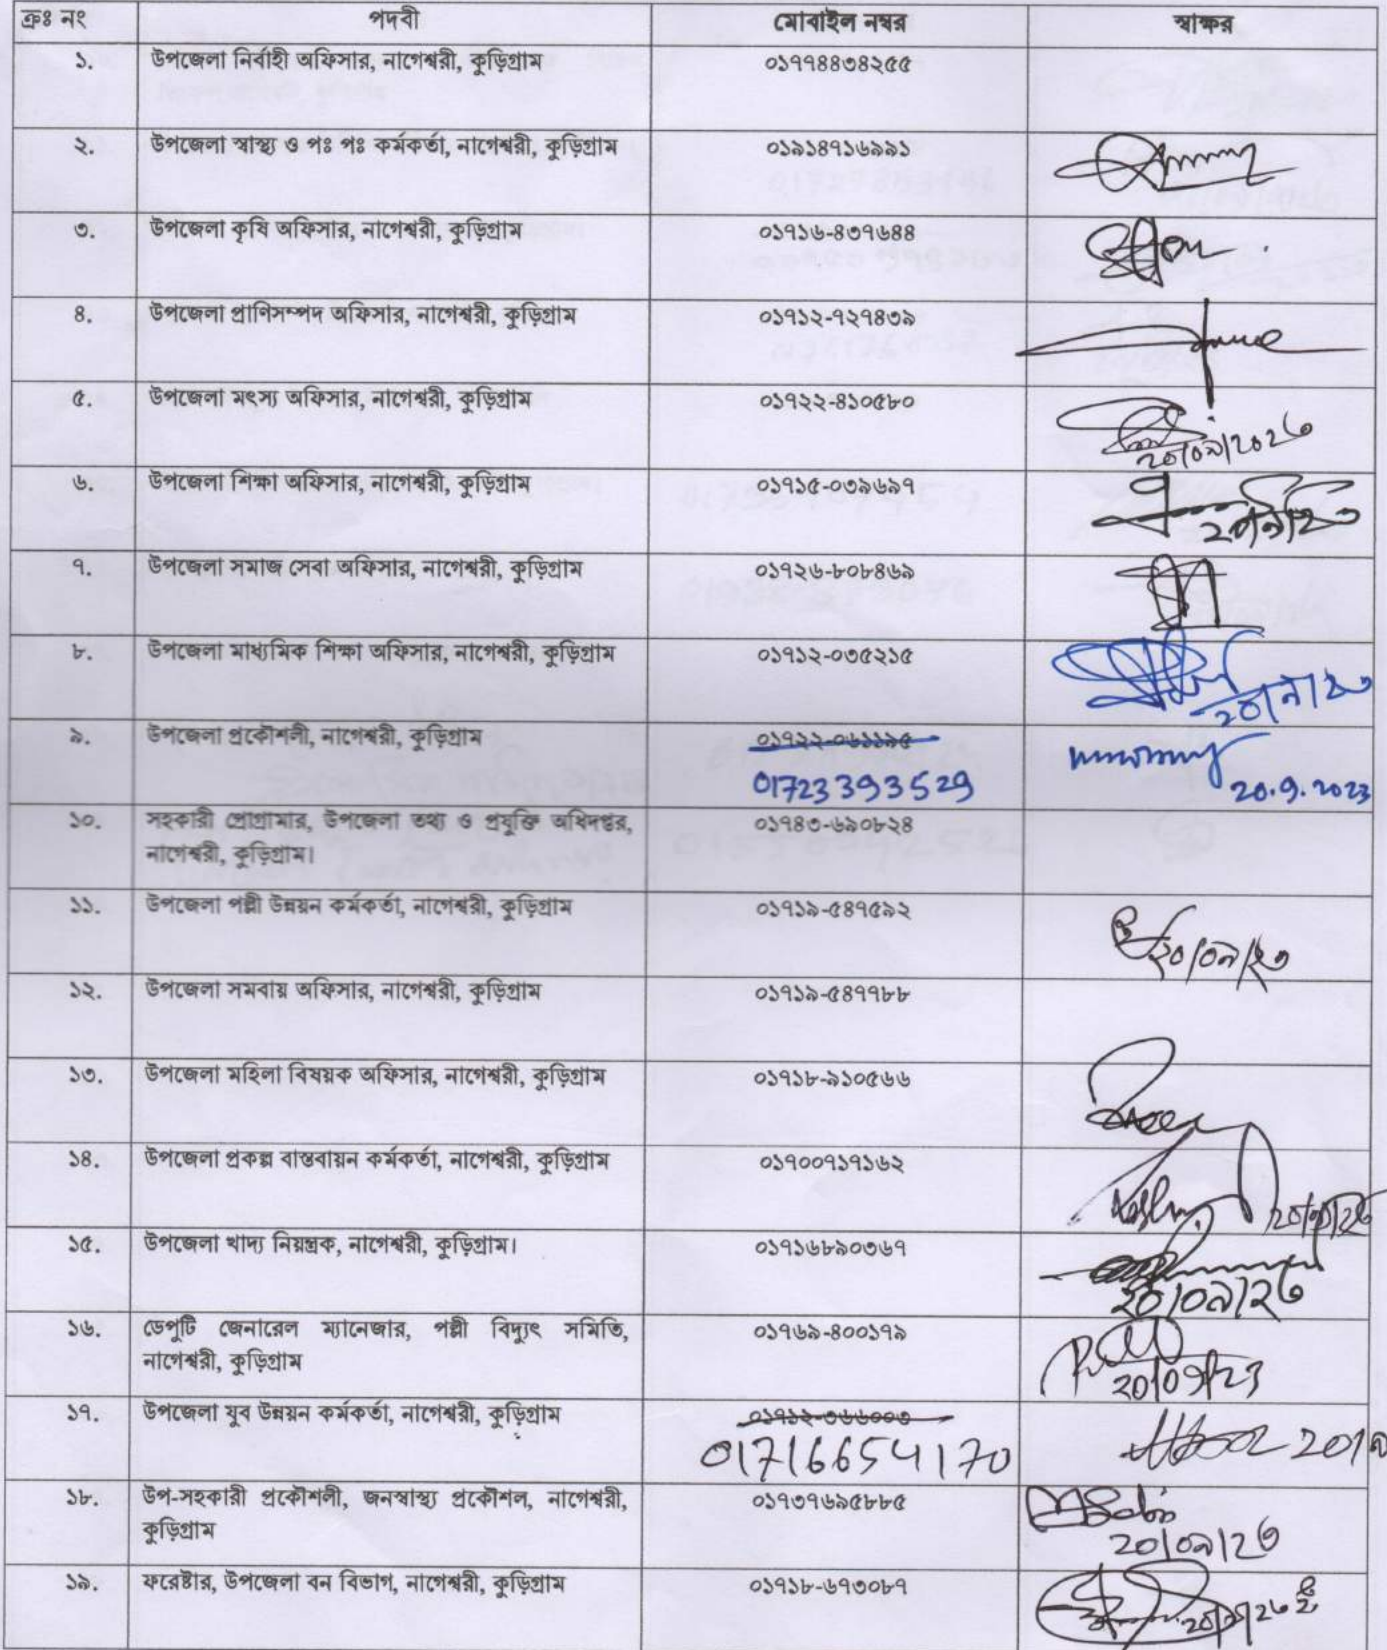 ক্রঃ নং পদবী মোবাইল নম্বর স্বাক্ষর
১. উপজেলা নির্বাহী অফিসার, নাগেশ্বরী, কুড়িগ্রাম ০১৭৭৪৪৩৪২৫৫
২. উপজেলা স্বাস্থ্য ও পঃ পঃ কর্মকর্তা, নাগেশ্বরী, কুড়িগ্রাম ০১৯১৪৭১৬৯৯১
৩. উপজেলা কৃষি অফিসার, নাগেশ্বরী, কুড়িগ্রাম ০১৭১৬-৪৩৭৬৪৪
৪. উপজেলা প্রাণিসম্পদ অফিসার, নাগেশ্বরী, কুড়িগ্রাম ০১৭১২-৭২৭৪৩৯
৫. উপজেলা মৎস্য অফিসার, নাগেশ্বরী, কুড়িগ্রাম ০১৭২২-৪১০৫৮০
২০/০৯/২০২৩
৬. উপজেলা শিক্ষা অফিসার, নাগেশ্বরী, কুড়িগ্রাম ০১৭১৫-০৩৯৬৯৭
২০/৯/২৩
৭. উপজেলা সমাজ সেবা অফিসার, নাগেশ্বরী, কুড়িগ্রাম ০১৭২৬-৮০৮৪৬৯
৮. উপজেলা মাধ্যমিক শিক্ষা অফিসার, নাগেশ্বরী, কুড়িগ্রাম ০১৭১২-০৩৫২১৫
২০/৯/২৩
৯. উপজেলা প্রকৌশলী, নাগেশ্বরী, কুড়িগ্রাম ০১৭২২-০৬১১৯৫
01723393529 20.9.2023
১০. সহকারী প্রোগ্রামার, উপজেলা তথ্য ও প্রযুক্তি অধিদপ্তর, ০১৭৪৩-৬৯০৮২৪
নাগেশ্বরী, কুড়িগ্রাম।
১১. উপজেলা পল্লী উন্নয়ন কর্মকর্তা, নাগেশ্বরী, কুড়িগ্রাম ০১৭১৯-৫৪৭৫৯২
২০/০৯/২৩
১২. উপজেলা সমবায় অফিসার, নাগেশ্বরী, কুড়িগ্রাম ০১৭১৯-৫৪৭৭৮৮
১৩. উপজেলা মহিলা বিষয়ক অফিসার, নাগেশ্বরী, কুড়িগ্রাম ০১৭১৮-৯১০৫৬৬
১৪. উপজেলা প্রকল্প বাস্তবায়ন কর্মকর্তা, নাগেশ্বরী, কুড়িগ্রাম ০১৭০০৭১৭১৬২
২০/৯/২৩
১৫. উপজেলা খাদ্য নিয়ন্ত্রক, নাগেশ্বরী, কুড়িগ্রাম। ০১৭১৬৮৯০৩৬৭
২০/০৯/২৩
১৬. ডেপুটি জেনারেল ম্যানেজার, পল্লী বিদ্যুৎ সমিতি, ০১৭৬৯-৪০০১৭৯
নাগেশ্বরী, কুড়িগ্রাম 20/09/23
১৭. উপজেলা যুব উন্নয়ন কর্মকর্তা, নাগেশ্বরী, কুড়িগ্রাম ০১৭১২-৩৬৬০০৩
01716654170
১৮. উপ-সহকারী প্রকৌশলী, জনস্বাস্থ্য প্রকৌশল, নাগেশ্বরী, ০১৭৩৭৬৯৫৮৮৫
কুড়িগ্রাম ২০/০৯/২৩
১৯. ফরেষ্টার, উপজেলা বন বিভাগ, নাগেশ্বরী, কুড়িগ্রাম ০১৭১৮-৬৭৩০৮৭